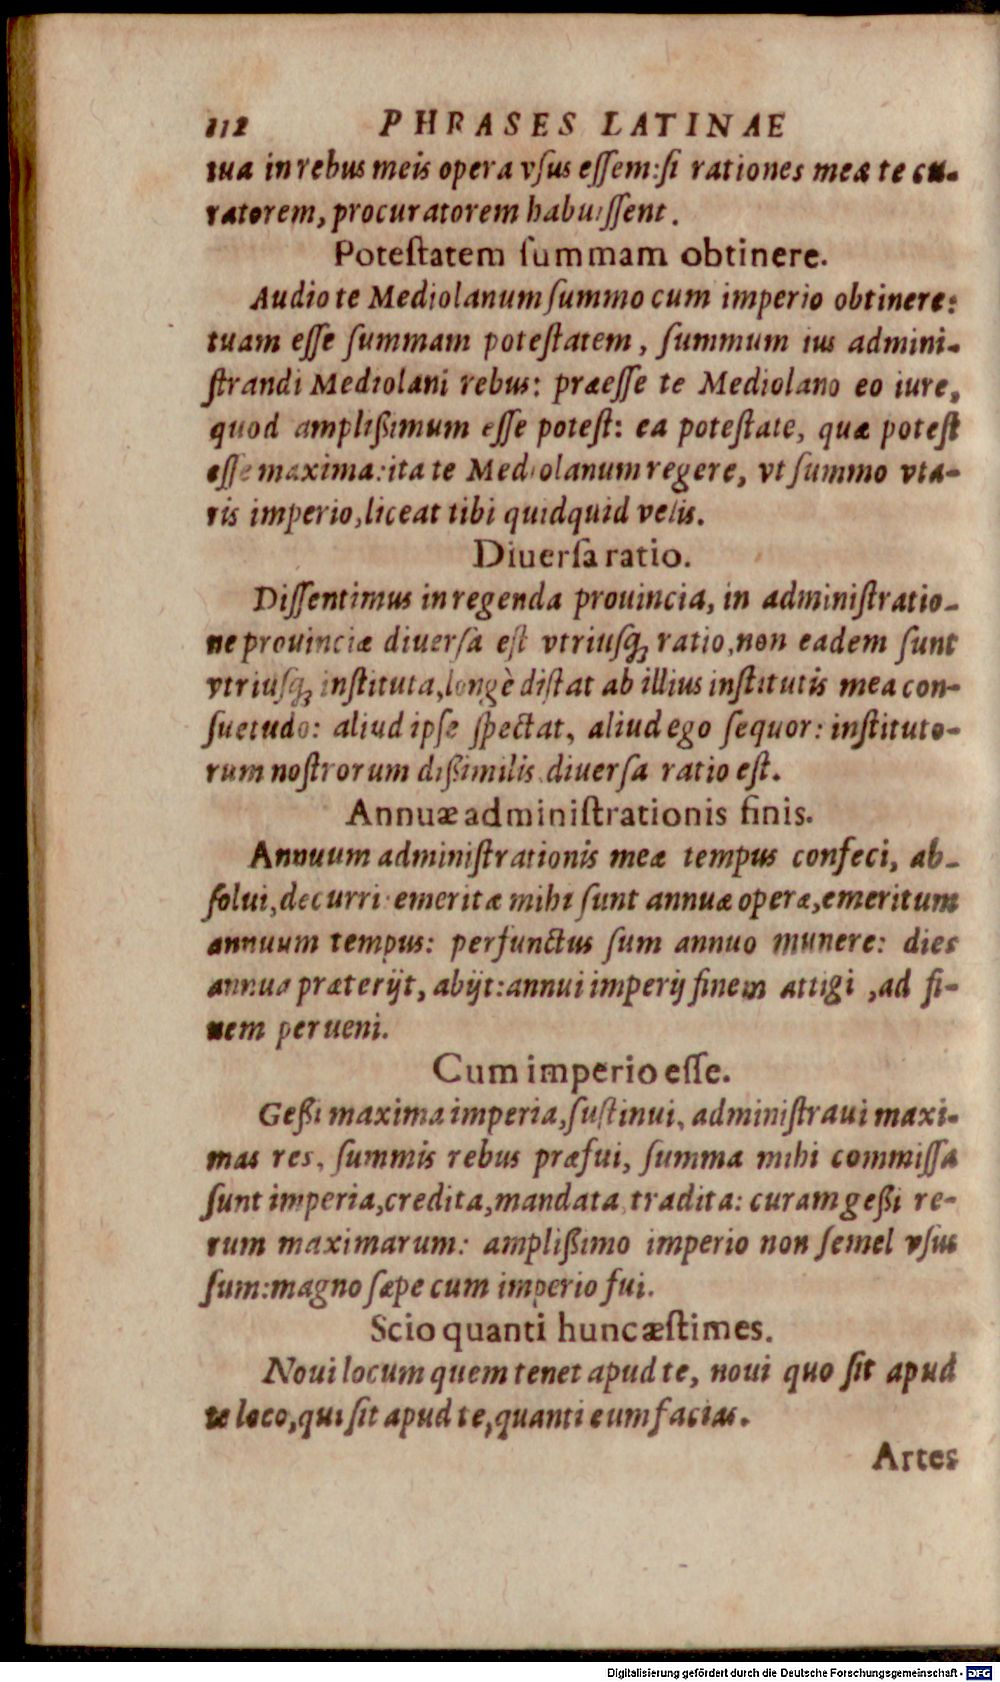 112 PHRASES LATINAE
tua in rebus meis opera vſus eſſem: ſi rationes meæ te cu-
ratorem, procuratorem habuiſſent.
Poteſtatem ſummam obtinere.
Audio te Mediolanum ſummo cum imperio obtinere:
tuam eſſe ſummam poteſtatem, ſummum ius admini-
ſtrandi Mediolani rebus: præeſſe te Mediolano eo iure,
quod ampliſsimum eſſe poteſt: ea poteſtate, quæ poteſt
eſſe maxima: ita te Mediolanum regere, vt ſummo vta-
ris imperio, liceat tibi quidquid velis.
Diuerſa ratio.
Diſſentimus in regenda prouincia, in adminiſtratio-
ne prouinciæ diuerſa eſt vtriuſq; ratio, non eadem ſunt
vtriuſq; inſtituta, longè diſtat ab illius inſtitutis mea con-
ſuetudo: aliud ipſe ſpectat, aliud ego ſequor: inſtituto-
rum noſtrorum diſsimilis diuerſa ratio eſt.
Annuæ adminiſtrationis finis.
Annuum adminiſtrationis meæ tempus confeci, ab-
ſolui, decurri emeritæ mihi ſunt annuæ operæ, emeritum
annuum tempus: perfunctus ſum annuo munere: dies
annua præterijt, abijt: annui imperij finem attigi, ad fi-
nem perueni.
Cum imperio eſſe.
Geſsi maxima imperia, ſuſtinui, adminiſtraui maxi-
mas res, ſummis rebus præfui, ſumma mihi commiſſa
ſunt imperia, credita, mandata tradita: curam geſsi re-
rum maximarum: ampliſsimo imperio non ſemel vſus
ſum: magno ſæpe cum imperio fui.
Scio quanti hunc æſtimes.
Noui locum quem tenet apud te, noui quo ſit apud
te loco, qui ſit apud te, quanti eum facias.
Artes
Digitalisierung gefördert durch die Deutsche Forschungsgemeinschaft - DFG